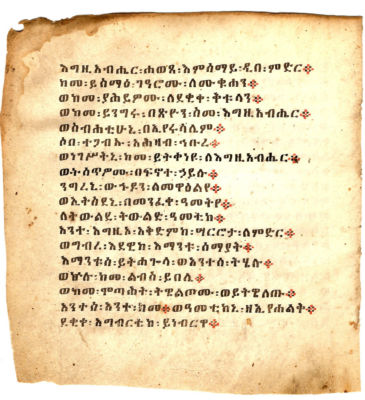 እግዚአብሔር፡ሐወጸ፡እምሰማይ፡ዲበ፡ምድር፨
ከመ፡ይስማዕ፡ገዓሮሙ፡ለሙቁሐን፨
ወከመ፡ያሕይዎሙ፡ለደቂቀ፡ቅቱላን፨
ወከመ፡ይንግሩ፡በጽዮን፡ስመ፡እግዚአብሔር፨
ወስብሐቲሁኒ፡በኢየሩሳሌም፨
ሶበ፡ተጋብኡ፡አሕዛብ፡ኅቡረ፨
ወነገሥትኒ፡ከመ፡ይትቀነዩ፡ለእግዚአብሔር፨
ወትሰጥዎሙ፡በፍኖተ፡ኃይሉ፨
ንግረኒ፡ውኅዶን፡ለመዋዕልየ፨
ወኢትስደኒ፡በመንፈቀ፡ዓመትየ፨
ለትውልደ፡ትውልድ፡ዓመቲከ፨
አንተ፡እግዚኦ፡አቅደምከ፡ሣርሮታ፡ለምድር፨
ወግብረ፡እደዊከ፡እማንቱ፡ሰማያት፨
እማንቱሰ፡ይትሐጐላ፡ወአንተሰ፡ትሄሉ፨
ወኵሉ፡ከመ፡ልብስ፡ይበሊ፨
ወከመ፡ሞጣሕት፡ትዌልጦሙ፡ወይትዌለጡ፨
አንተሰ፡አንተ፡ክመ፨ወዓመቲከኒ፡ዘኢየሐልቅ፨
ደቂቀ፡አግብርቲከ፡ይነብርዋ፨